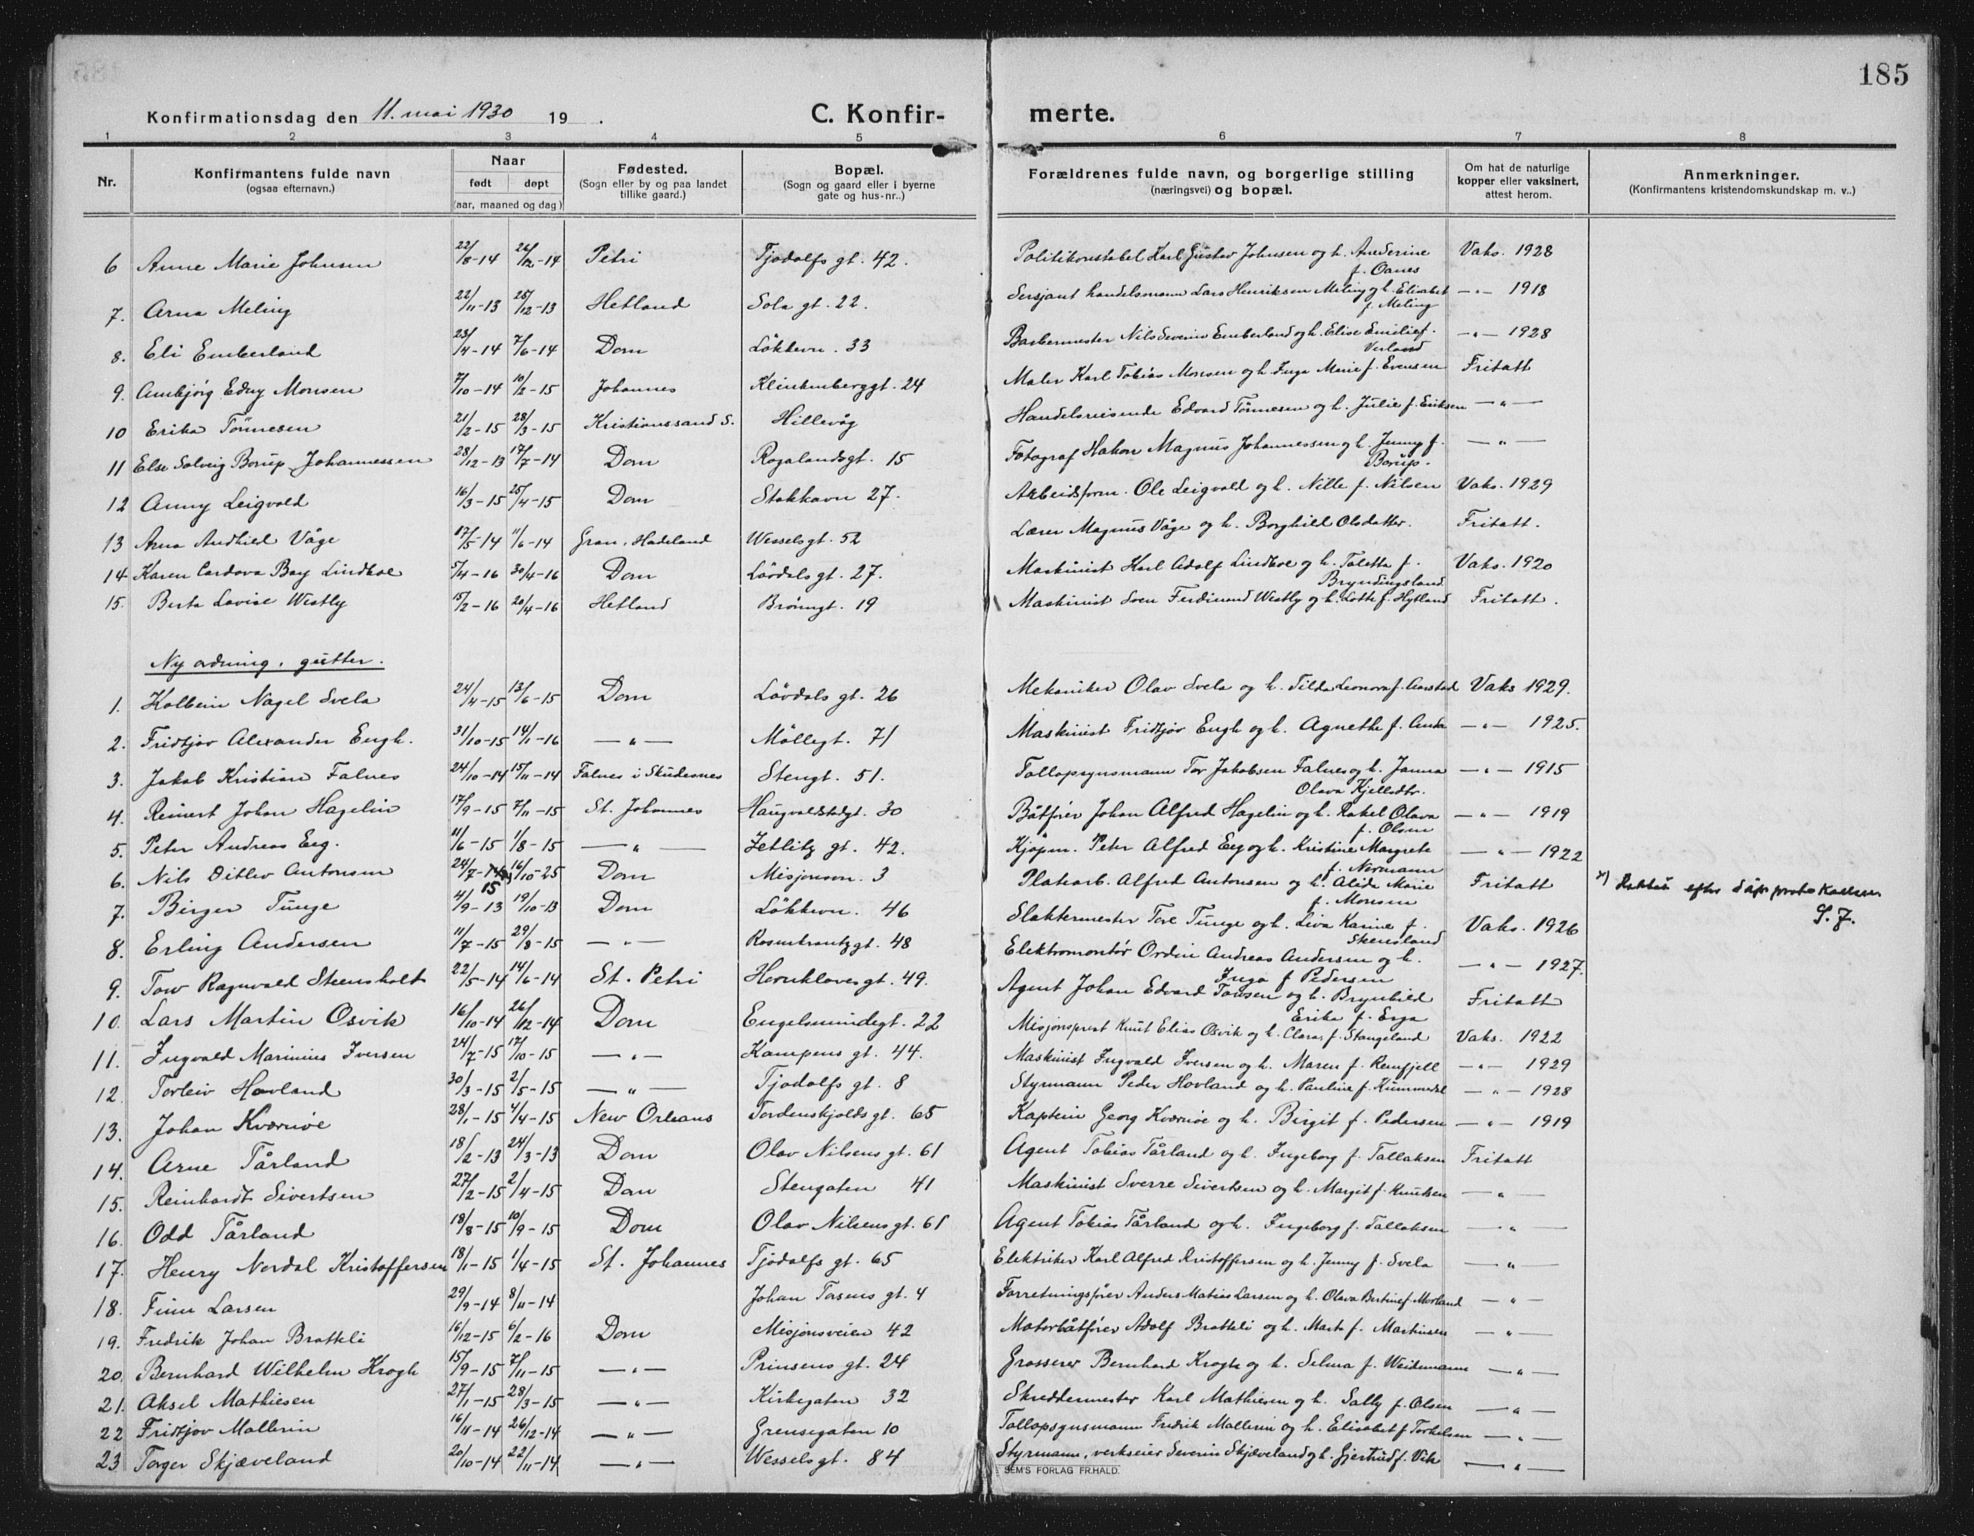 185
Konfirmationsdag den 11. mai 1930 19 .
C. Konfir-
merte.
1 2 3 4 5 6 7 8
Nr.
Konfirmantens fulde navn
(ogsaa efternavn.)
Naar
født døpt
(aar, maaned og dag)
Fødested.
(Sogn eller by og paa landet
tillike gaard.)
Bopæl.
(Sogn og gaard eller i byerne
gate og hus-nr..)
Forældrenes fulde navn, og borgerlige stilling
(næringsvei) og bopæl.
Om hat de naturlige
kopper eller vaksinert,
attest herom.
Anmerkninger.
(Konfirmantens kristendomskundskap m. v..)
6 Anne Marie Johnsen 22/8-14 26/12-14 Petri Tjodolfs gt. 42. Politikonstabel Karl Gustav Johnsen og h. Anderine Vaks. 1928
f. Oanes
7. Arna Meling 22/11-13 25/12-13 Hetland Sola gt. 22. Sersjant handelsmann Lars Henriksen Meling og h. Elisabet —"— 1918
f. Meling
8. Eli Emberland 23/4-14 7/6-14 Dom Løkkevn. 33 Barbermester Nils Severin Emberland og h. Elise Emilie f. —"— 1928
Verland
9. Annbjørg Edny Monsen 7/10-14 10/2-15 Johannes Klinkenberggt. 24 Maler Karl Tobias Monsen og h. Inga Marie f. Evensen Fritatt
10 Erika Tønnesen 21/2-15 28/3-15 Kristianssand S. Hillevåg Handelsreisende Edvard Tønnesen og h. Julie f. Eriksen —"—
11 Else Solveig Borup Johannessen 28/12-13 17/7-14 Dom Rogalandsgt. 15 Fotograf Hakon Magnus Johannessen og h. Jenny f. —"—
Borup.
12 Anny Leigvold 16/3-15 25/4-15 Dom Stokkavn 27. Arbeidsform. Ole Leigvold og h. Nille f. Nilsen Vaks. 1929
13 Arna Andhild Våge 17/5-14 11/6-14 Gran, Hadeland Wesselsgt. 52 Lærer Magnus Våge og h. Borghild Olsdatter. Fritatt.
14 Karen Cordova Bay Lindboe 5/4-16 30/4-16 Dom Løvdalsgt. 27. Maskinist Karl Adolf Lindboe og h. Toletta f. Vaks. 1920
Bryndingsland
15. Berta Lovise Westly 15/2-16 20/4-16 Hetland Brønngt. 19 Maskinist Sven Ferdinand Westly og h. Lotte f. Hytland Fritatt.
Ny ordning, gutter.
1. Kolbein Nagel Svela 24/4-15 13/6-15 Dom Løvdals gt. 26 Mekaniker Olav Svela og h. Tilda Leonora f. Aarstad Vaks 1929.
2. Fridtjov Alexander Engh. 31/10-15 14/1-16 —"— Møllegt. 71 Maskinist Fridtjov Engh og h. Agnethe f. Anda —"— 1925.
3. Jakob Kristian Falnes 24/10-14 15/11-14 Falnes i Skudesnes Stengt. 51. Tollopsynsmann Tor Jakobsen Falnes og h. Janna —"— 1915
Olava Kjellsdtr.
4. Reinert Johan Hagelin 17/9-15 7/11-15 St. Johannes Haugvaldstadgt. 30 Båtfører Johan Alfred Hagelin og h. Rakel Olava —"— 1919
f. Olsen
5. Peter Andreas Eeg. 11/6-15 1/8-15 —"— Zetlitz gt. 42. Kjøpm. Peter Alfred Eeg og h. Kristine Margrete —"— 1922
f. Normann
6. Nils Ditlev Antonsen 24/7-14 x) 16/10-25 Dom Misjonsvn. 3 Platearb. Alfred Antonsen og h. Alida Marie Fritatt x) Rettet efter dåpsprotokollen
15
f. Monsen
S. F.
7. Birger Tunge 4/9-13 19/10-13 Dom Løkkevn. 46 Slaktermester Tore Tunge og h. Liva Karine f. Vaks. 1926
Skensland
8. Erling Andersen 11/7-15 29/8-15 —"— Rosenkrantzgt. 48 Elektromontør Ordin Andreas Andersen og h. —"— 1927.
Inga f. Pedersen
9. Tow Ragnvald Steensholt 22/5-14 14/6-14 St. Petri Hornklovesgt. 49. Agent Johan Edvard Tonsen og h. Brynhild Fritatt
Erika f. Erga
10. Lars Martin Osvik 16/10-14 26/12-14 Dom Engelsmindegt. 22 Misjonsprest Knut Elias Osvik og h. Clara f. Stangeland Vaks. 1922
11. Ingvald Marinius Iversen 24/7-15 17/10-15 —"— Kampens gt. 44. Maskinist Ingvald Iversen og h. Maren f. Remfjell —"— 1929
12. Torleiv Hovland 30/3-15 2/5-15 —"— Tjodolfs gt. 8 Styrmann Peder Hovland og h. Pauline f. Hummedal —"— 1928
13. Johan Kværnøe 28/1-15 4/4-15 New Orleans Tordenskjolds gt. 65 Kaptein Georg Kværnøe og h. Birgit f. Pedersen —"— 1919
14. Arne Tårland 18/2-13 24/3-13 Dom Olav Nilsens gt. 61 Agent Tobias Tårland og h. Ingeborg f. Tallaksen Fritatt
15. Reinhardt Sivertsen 27/2-15 2/4-15 Dom Stengaten 41 Maskinist Sverre Sivertsen og h. Margit f. Knutsen —"—
16. Odd Tårland 18/8-15 10/9-15 Dom Olav Nilsens gt. 61 Agent Tobias Tårland og h. Ingeborg f. Tallaksen —"—
17. Henry Nordal Kristoffersen 18/1-15 1/4-15 St. Johannes Tjodolfs gt. 65 Elektriker Karl Alfred Kristoffersen og h. Jenny f. Svela —"—
18. Finn Larsen 29/9-14 8/11-14 Johan Torsens gt. 4 Forretningsfører Anders Matias Larsen og h. Olava Bertine f. Morland —"—
19. Fredrik Johan Brattli 16/12-15 6/2-16 Dom Misjonsveien 42 Motorbåtfører Adolf Brattli og h. Marta f. Martinsen —"—
20. Bernhard Wilhelm Krogh 15/9-15 7/11-15 —"— Prinsens gt. 24 Grosserer Bernhard Krogh og h. Selma f. Weidemann —"—
21. Aksel Mathiesen 27/1-15 28/3-15 —"— Kirkegaten 32 Skreddermester Karl Mathiesen og h. Sally f. Olsen —"—
22 Fridtjov Mallerin 16/11-14 26/12-14 —"— Grensegaten 10 Tollopsynsmann Fredrik Mallerin og h. Elisabet f. Torkelsen —"—
23 Torger Skjæveland 20/10-14 22/11-14 —"— Wesselsgt. 84 Styrmann, verkseier Severin Skjæveland og h. Gjertrud f. Vik —"—
SEM'S FORLAG FR.HALD.